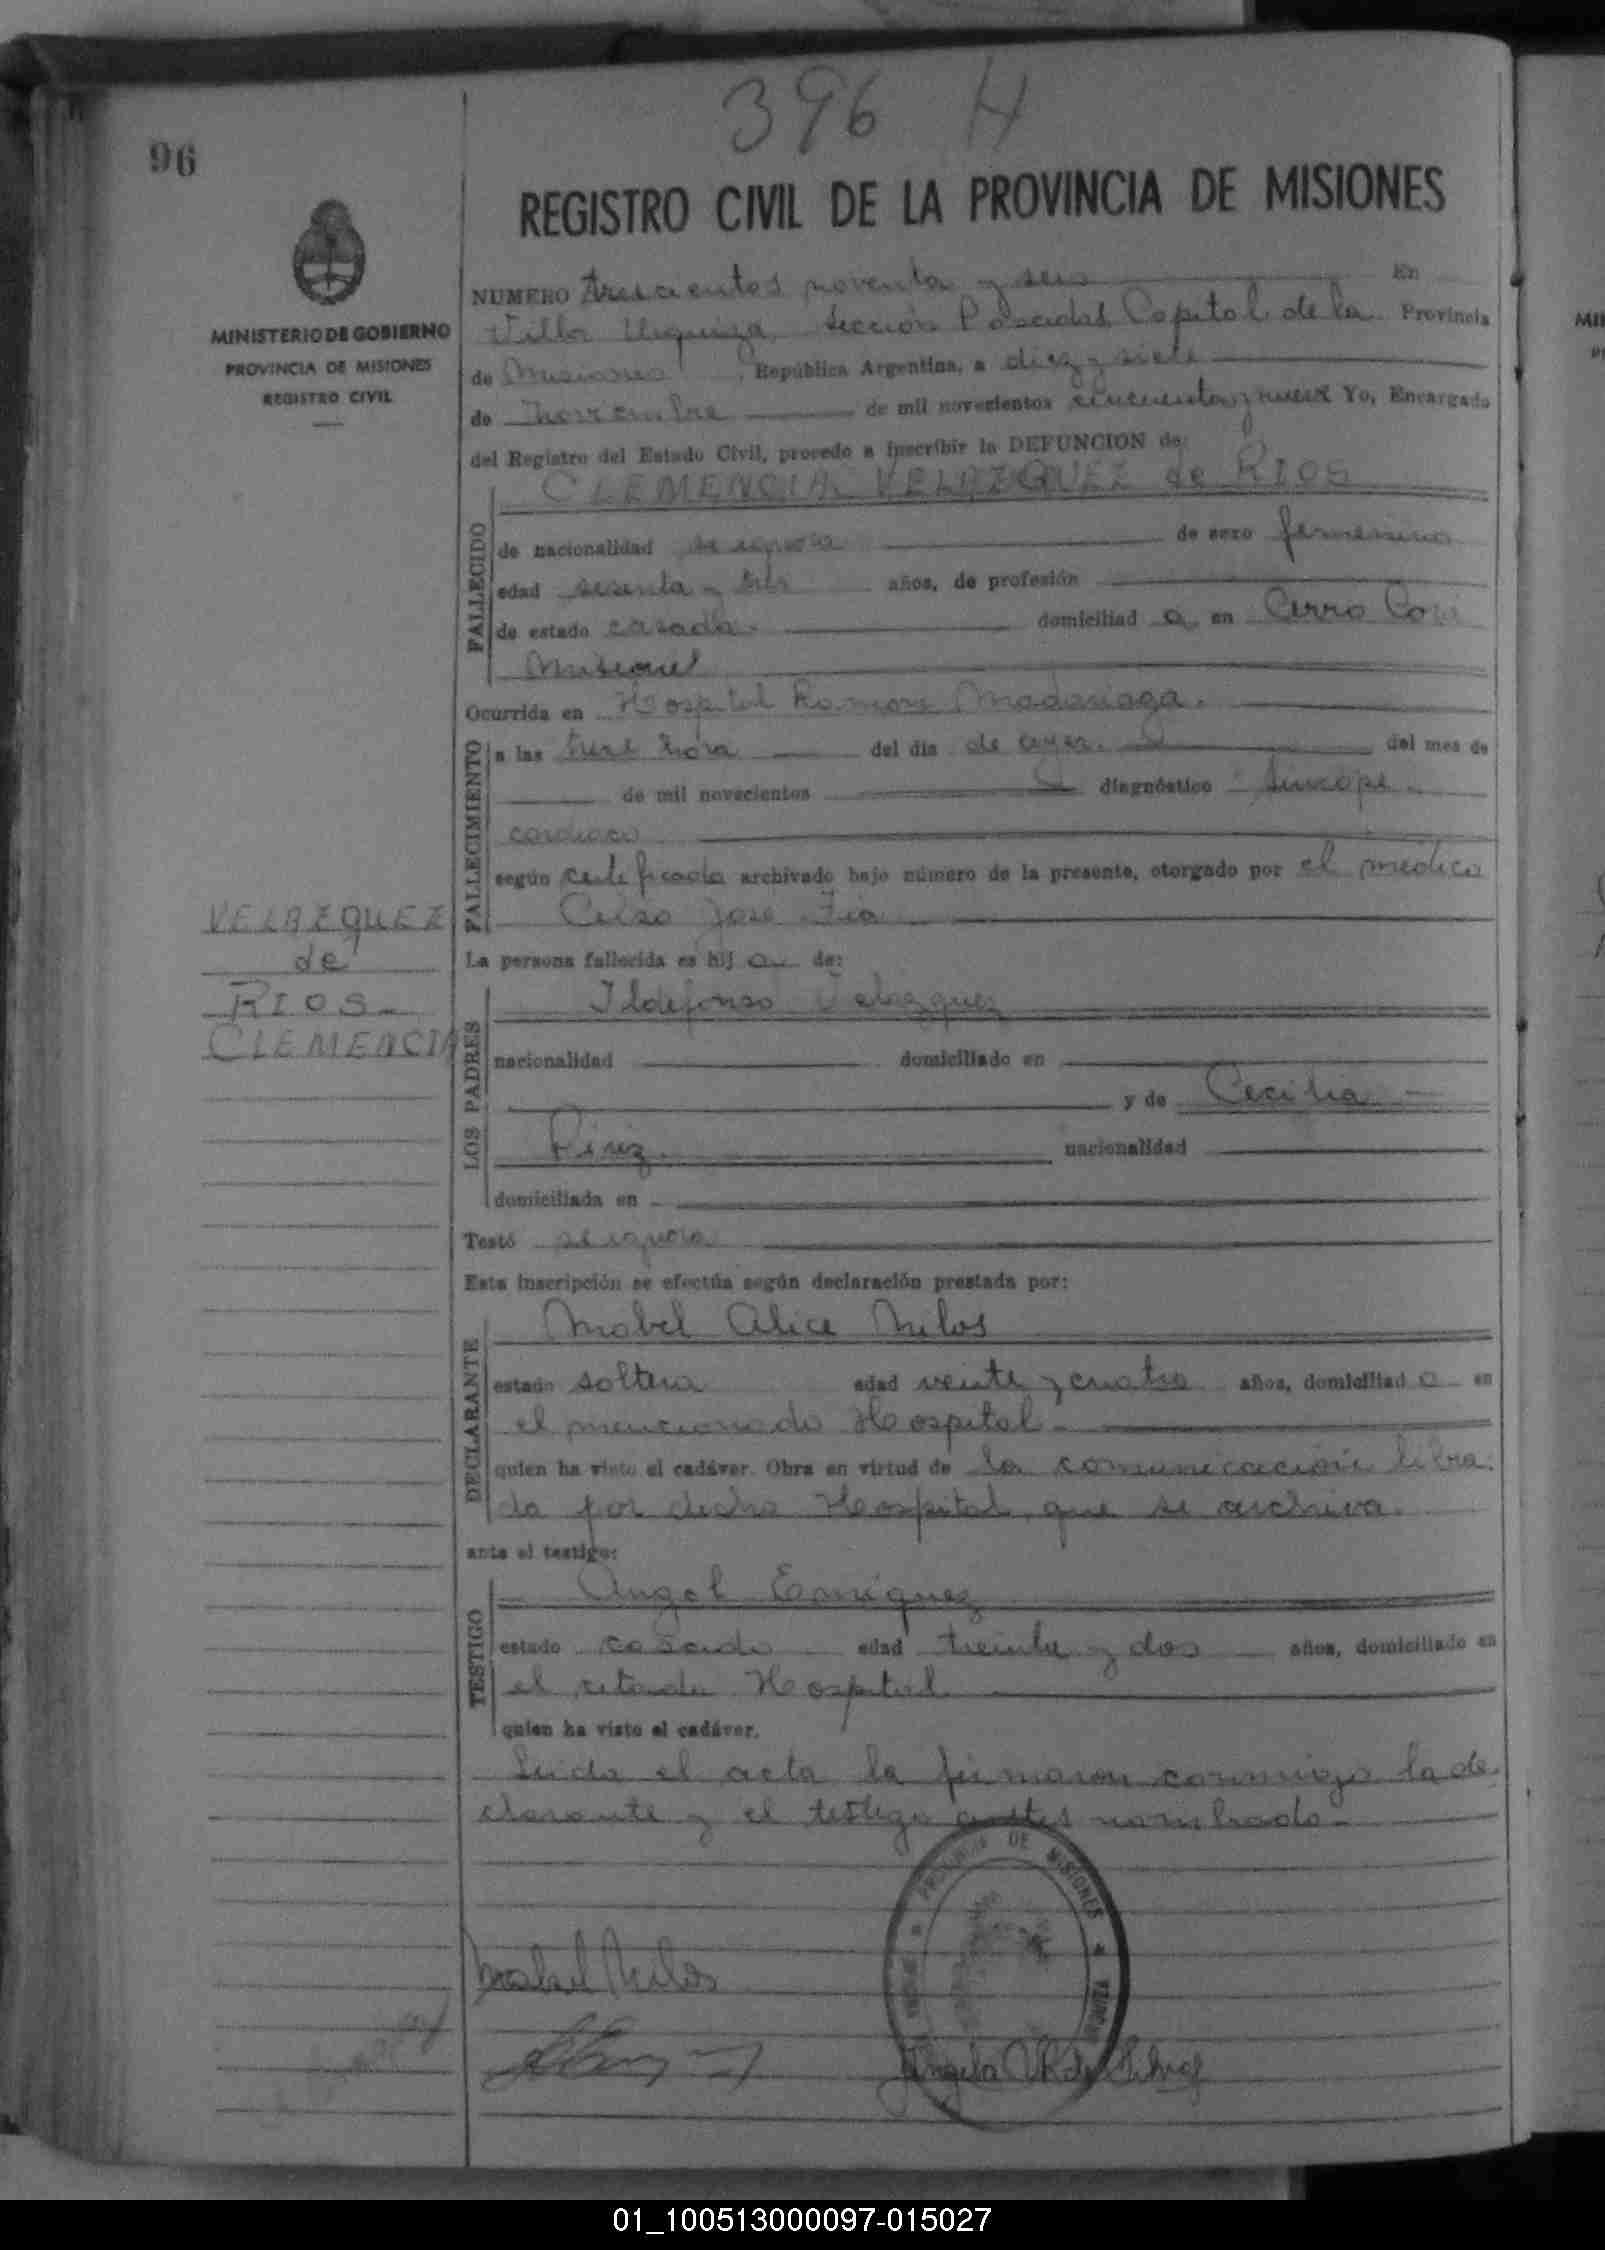 396 H
96
REGISTRO CIVIL DE LA PROVINCIA DE MISIONES
MINISTERIO DE GOBIERNO
PROVINCIA DE MISIONES
REGISTRO CIVIL
NUMERO trescientos noventa y seis En
Villa Urquiza, Sección Posadas Capital de la Provincia
de Misiones, República Argentina, a diez y siete
de Noviembre de mil novecientos cincuenta y nueve Yo, Encargado
del Registro del Estado Civil, procedo a inscribir la DEFUNCION de:
CLEMENCIA VELAZQUEZ de RIOS
FALLECIDO
de nacionalidad se ignora de sexo femenino
edad sesenta y tres años, de profesión
de estado casada. domiciliad a en Cerro Corá
Misiones
Ocurrida en Hospital Ramon Madariaga.
FALLECIMIENTO
a las trece hora del día de ayer. del mes de
de mil novecientos diagnóstico síncope
cardiaco
según certificado archivado bajo número de la presente, otorgado por el médico
Celso Jose
VELAZQUEZ
de
RIOS-
CLEMENCIA
La persona fallecida es hij a de:
LOS PADRES
Ildefonso Velazquez
nacionalidad domiciliado en
y de Cecilia
nacionalidad
domiciliada en
Testó se ignora
Esta inscripción se efectúa según declaración prestada por:
DECLARANTE
Mabel Alice Milos
estado soltera edad veinte y cuatro años, domiciliad a en
el mencionado Hospital-
quien ha visto el cadáver. Obra en virtud de la comunicación libra-
da por dicho Hospital, que se archiva.
ante el testigo:
TESTIGO
Angel Enriquez
estado casado edad treinta y dos años, domiciliado en
el citado Hospital
quien ha visto el cadáver.
Leida el acta la firmaron conmigo la de-
clarante y el testigo antes nombrado-
PROVINCIA DE MISIONES
Mabel Milos
01_100513000097-015027